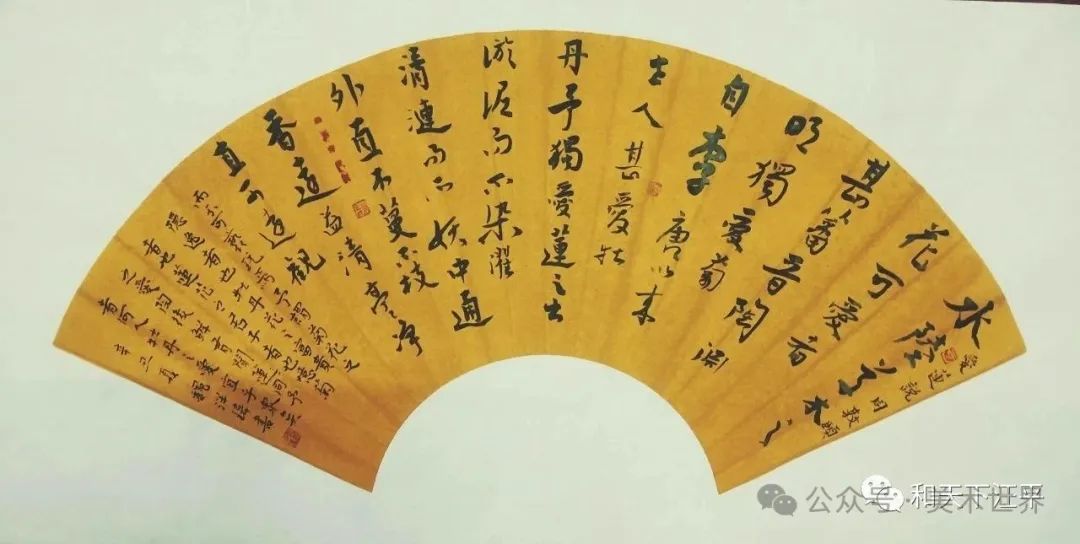 愛蓮說 周敦頤
水陸草木之
花可愛者
甚蕃晉陶淵
明獨愛菊
自李唐以来
世人甚愛牡
丹予獨愛蓮之出
淤泥而不染濯
清漣而不妖中通
外直不蔓不枝
香遠益清亭亭净
直可遠觀
而不可褻玩焉予謂菊花之
隱逸者也牡丹花之富貴
者也蓮花之君子者也噫菊
之愛陶後鮮有聞蓮之愛同予
者何人牡丹之愛宜乎衆矣
辛丑夏
公众号·美术世界
和天下江平